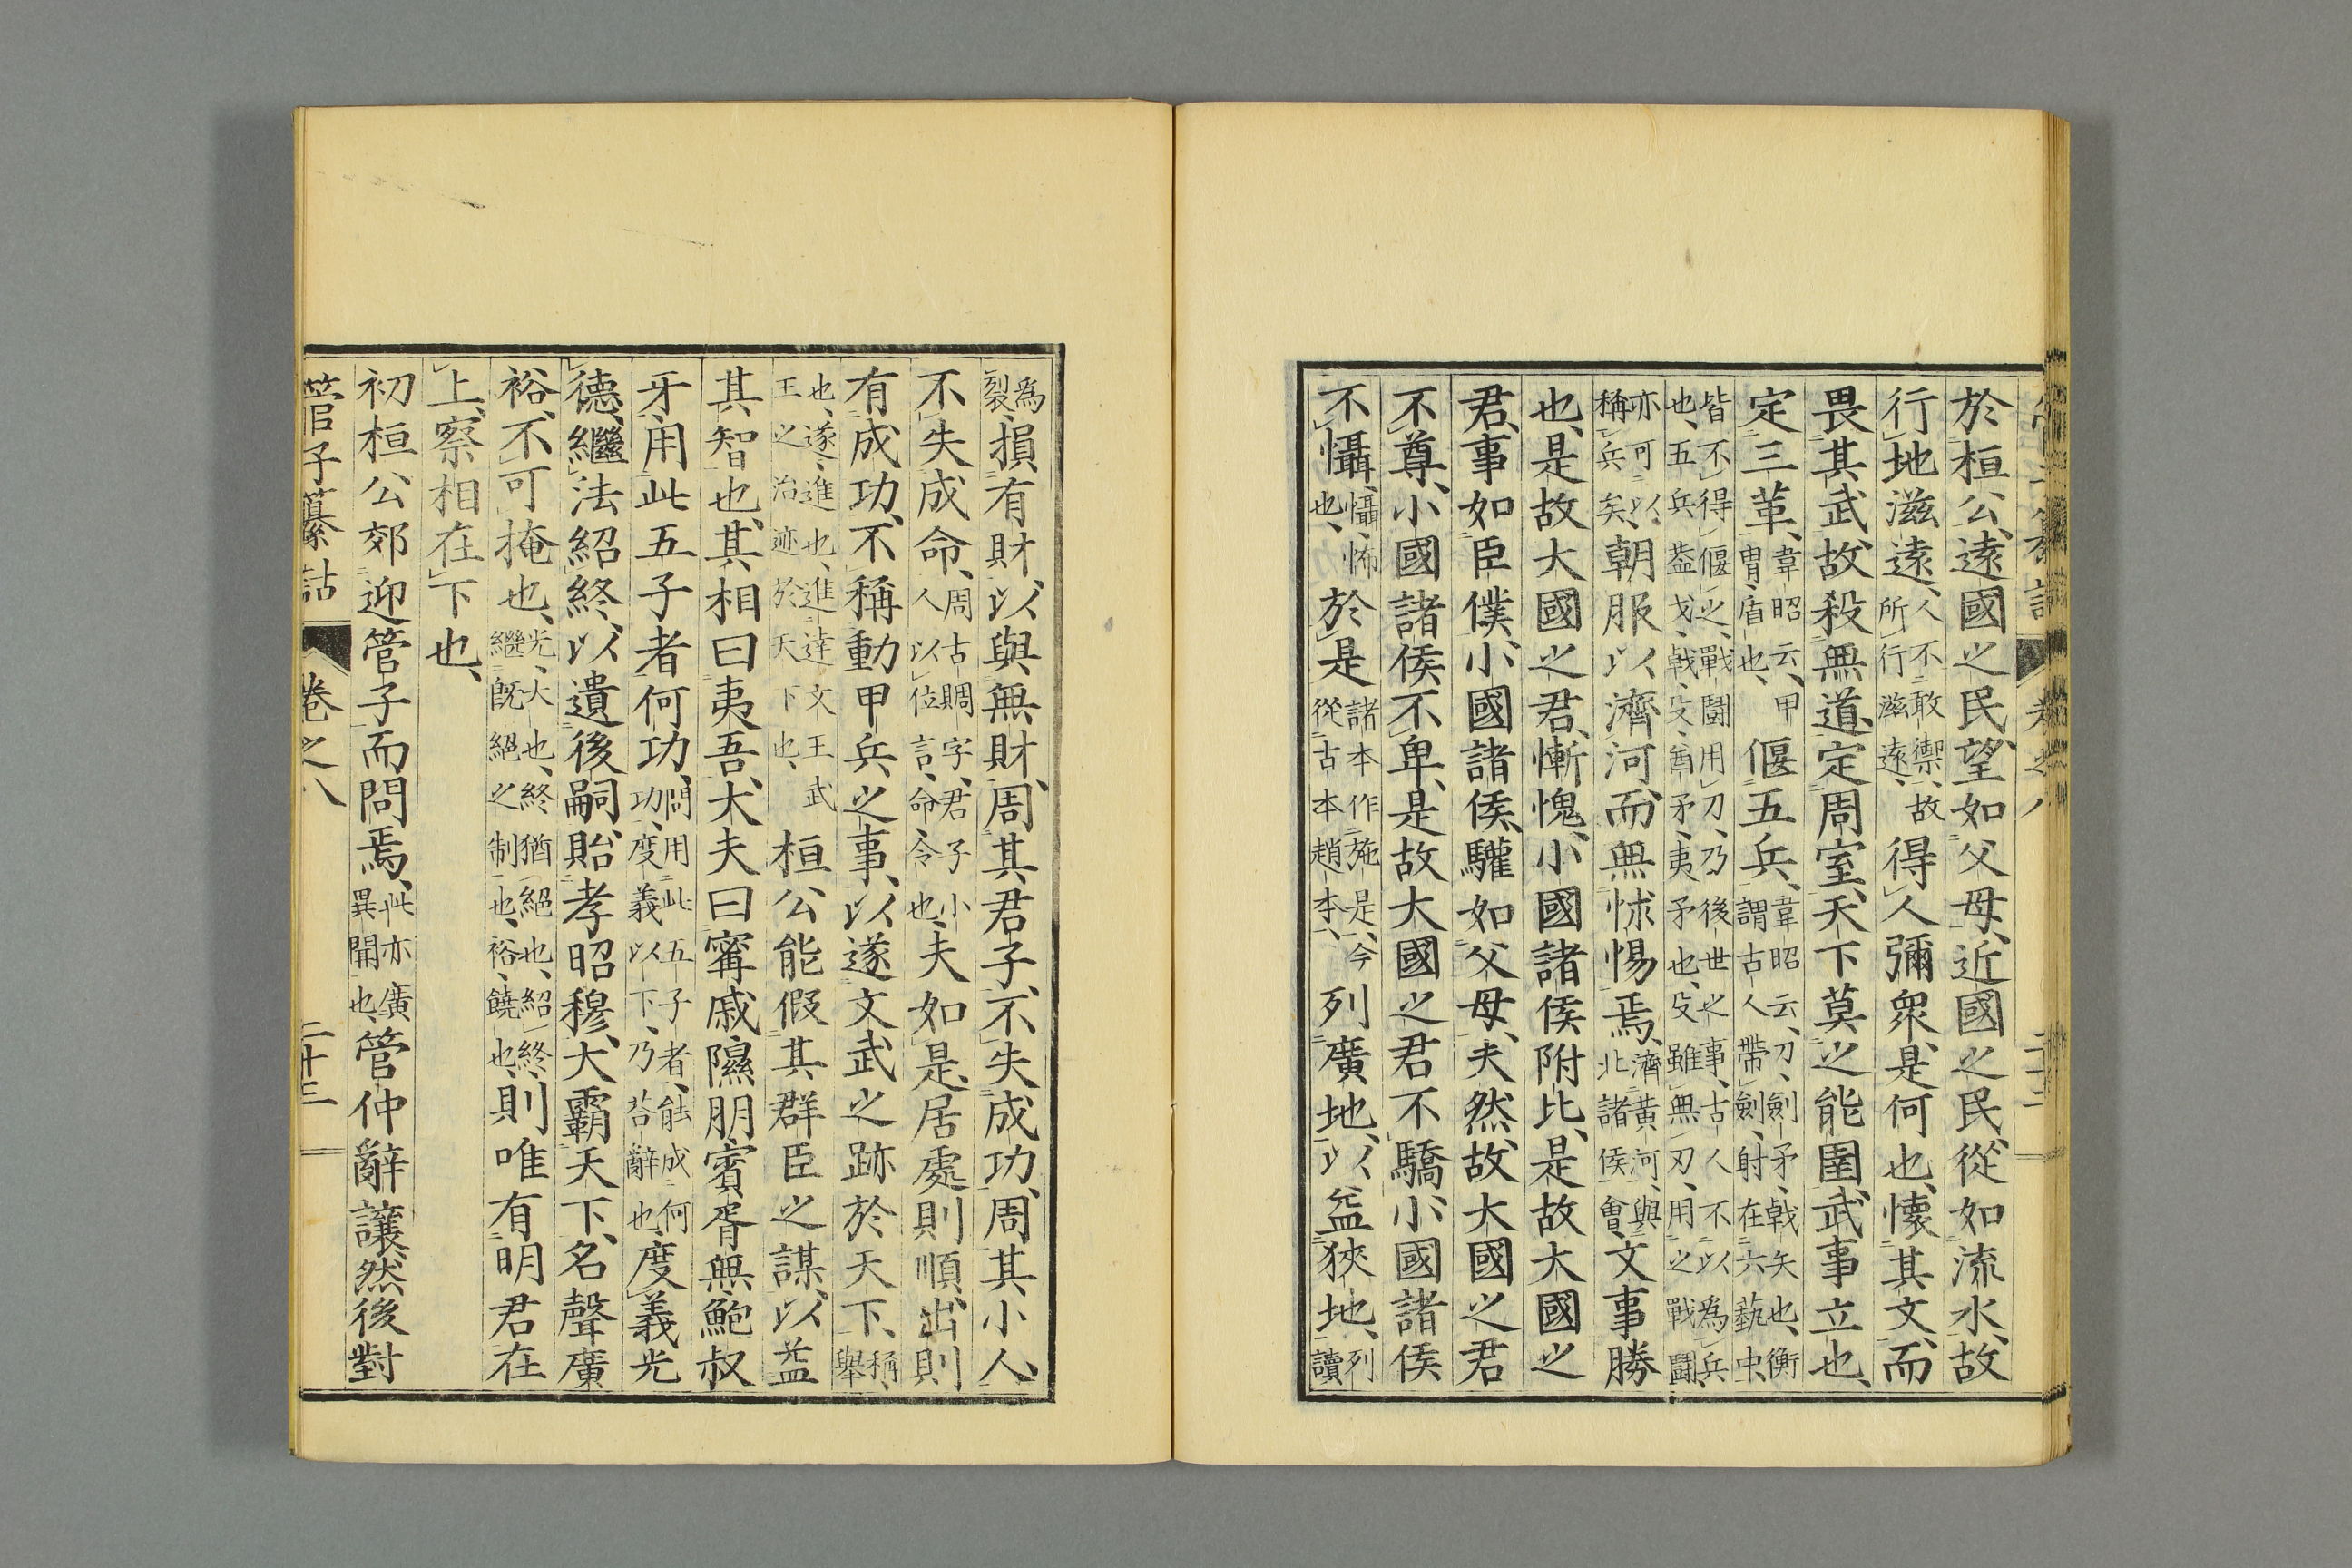 管子纂詁 卷之八
於桓公、遠國之民、望如父母、近國之民、從如流水、故
行地滋遠、人不敢禦、故所行滋遠、得人彌衆、是何也、懷其文、而
畏其武、故殺無道、定周室、天下莫之能圉、武事立也、
定三革、韋昭云、甲冑、盾也、偃五兵、韋昭云、刀、劍、矛、戟、矢也、衡謂古人帶劍、射在六藝中、
皆不得偃之、戰鬪用刀、乃後世之事、古人不以爲兵也、五兵葢戈、戟、殳、酋矛、夷矛也、殳雖無刃、用之戰鬪、
亦可以稱兵矣、朝服以濟河、而無怵惕焉、濟黃河、與北諸侯會、文事勝
也、是故大國之君、慚愧、小國諸侯附比、是故大國之
君、事如臣僕、小國諸侯、驩如父母、夫然、故大國之君
不尊、小國諸侯不卑、是故大國之君不驕、小國諸侯
不懾、懾、怖也、於是諸本作施是、今從古本趙本、列廣地、以益狹地、列讀
爲裂、損有財、以與無財、周其君子、不失成功、周其小人、
不失成命、周古賙字、君子小人以位言、命、令也、夫如是、居處則順、出則
有成功、不稱動甲兵之事、以遂文武之跡於天下、稱、舉
也、遂、進也、進達文王武王之治迹於天下也、桓公能假其群臣之謀、以益
其智也、其相曰夷吾、大夫曰甯戚隰朋賓胥無鮑叔
牙、用此五子者何功、問用此五子者、能成何功、度義以下、乃荅辭也、度義光
德、繼法紹終、以遺後嗣、貽孝昭穆、大霸天下、名聲廣
裕、不可掩也、光、大也、終猶絕也、紹終、繼既絕之制也、裕、饒也、則唯有明君在
上、察相在下也、
初桓公郊迎管子而問焉、此亦廣異聞也、管仲辭讓、然後對
管子纂詁 卷之八 二十三